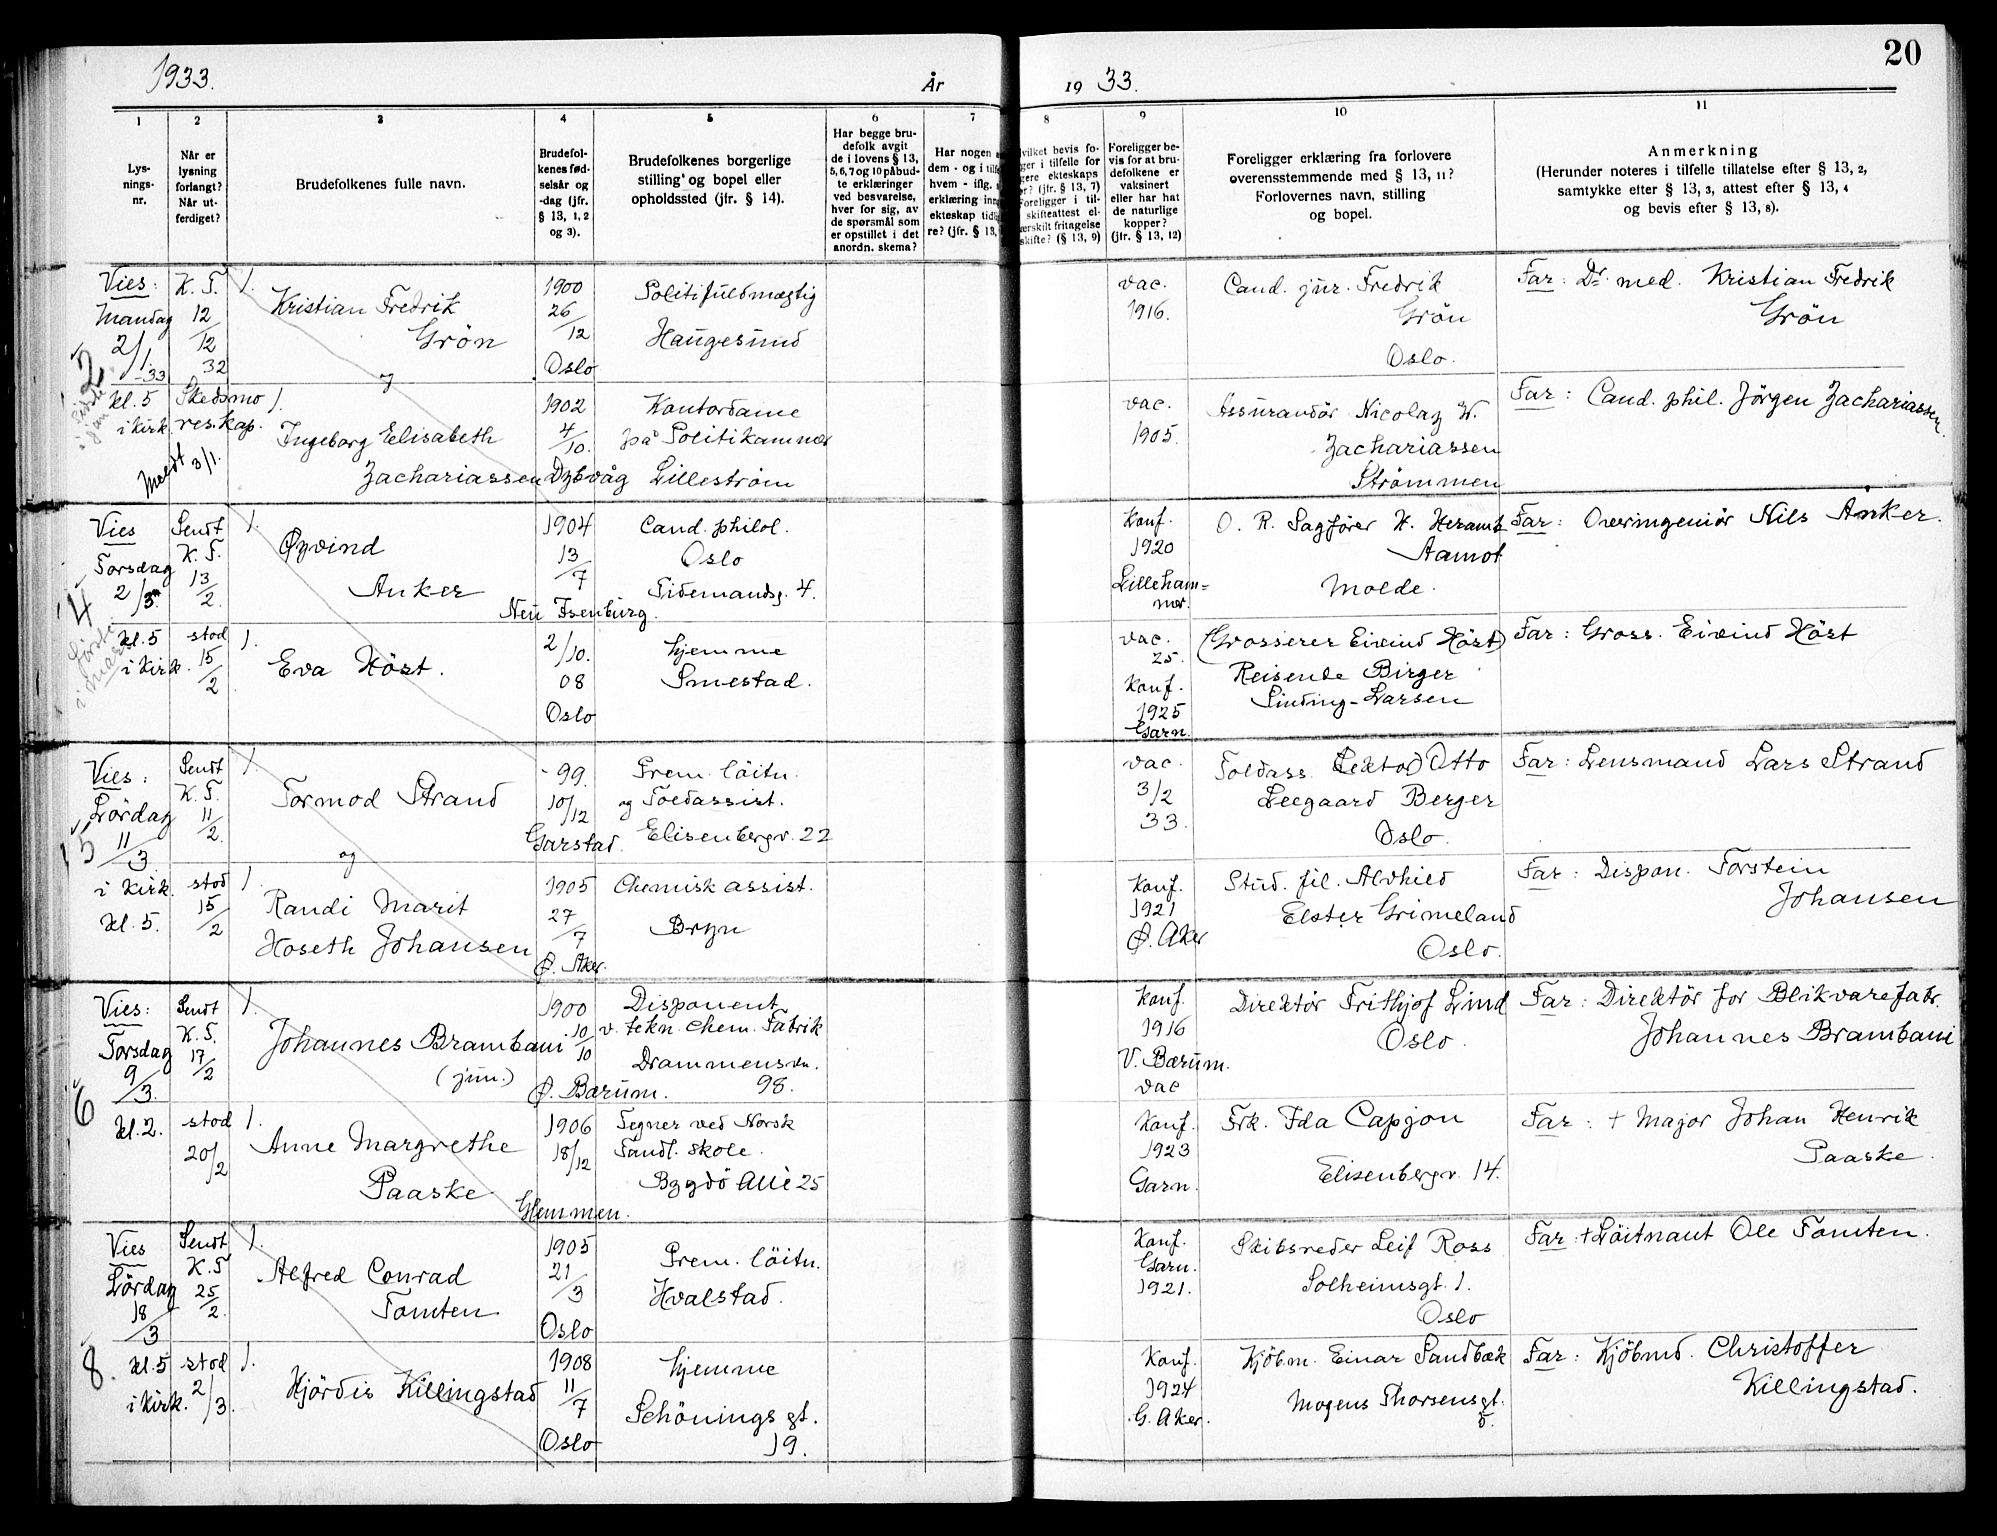 1933.
År
19 33.
20
1
2
3
4
5
6
7
8
9
10
11
Lys-
nings-
nr.
Når er
lysning
forlangt?
Når ut-
ferdiget?
Brudefolkenes fulle navn.
Brudefol-
kenes fød-
selsår og
-dag (jfr.
§ 13, 1, 2
og 3).
Brudefolkenes borgerlige
stilling og bopel eller
opholdssted (jfr. § 14).
Har begge bru-
defolk avgit
de i lovens § 13,
5, 6, 7 og 10 påbud-
te erklæringer
ved besvarelse,
hver for sig, av
de spørsmål som
er opstillet i det
anordn. skema?
Har nogen
dem - og i
hvem - iflg.
erklæring
ekteskap
re? (jfr. § 13,
hvilket bevis fo-
ger i tilfelle for
ere ekteskaps
r? (jfr. § 13, 7)
Foreligger i til-
skifteattest el-
særskilt fritagelse
skifte? (§ 13, 9)
Foreligger be-
vis for at bru-
defolkene er
vaksinert
eller har hat
de naturlige
kopper?
(jfr. § 13, 12)
Foreligger erklæring fra forlovere
overensstemmende med § 13, 11?
Forlovernes navn, stilling
og bopel.
Anmerkning
(Herunder noteres i tilfelle tillatelse efter § 13, 2,
samtykke efter § 13, 3, attest efter § 13, 4
og bevis efter § 13, 8).
2
Vies:
Mandag
2/1.
-33
kl. 5
i kirk.
Meldt 3/1.
K. T.
12/12
32
Skedsmo
res.kap.
1.
Kristian Fredrik
Grön
og
1900
26/12
Oslo
Politifuldmægtig
Haugesund
vac.
1916.
Cand. jur. Fredrik
Grön
Oslo.
Far: Dr. med. Kristian Fredrik
Grön
1.
Ingeborg Elisabeth
Zachariassen
1902
4/10.
Dybvåg
Kontordame
på Politikammer
Lilleström
vac.
1905.
Assurandör Nicolay W.
Zachariassen
Strømmen
Far: Cand. phil. Jörgen Zachariassen.
4
Vies
Torsdag
2/3.
kl. 5
i kirk.
Sendt
K. T.
13/2.
stod
15/2
1.
Øyvind
Anker
1904
13/7
Neu Isenburg.
Cand. philol.
Oslo
Tidemandsg. 4.
Konf.
1920
Lilleham=
mer.
O. R. Sagfører H. Heramb
Aamot
Molde.
Far: Overingeniör Nils Anker.
1.
Eva Höst.
2/10.
08
Oslo
hjemme
Smestad.
vac.
25.
Konf.
1925
Garn.
(Grosserer Eivind Höst)
Reisende Birger
Linding-Larsen
Far: Gross. Eivind Höst
5
Vies:
Lördag
11/3.
i kirk.
kl. 5.
Sendt
K. T.
11/2.
stod
15/2
1.
Tormod Strand
og
-99.
10/12
Garstad.
Prem. löitn.
og Toldassist.
Elisenbergv. 22
vac.
3/2
33.
Toldass. (Lektor) Otto
Leegaard Berger
Oslo.
Far: Lensmand Lars Strand
1.
Randi Marit
Hoseth Johansen
1905
27/7
Ø. Aker.
Chemisk assist.
Bryn
Konf.
1921
Ø. Aker
Stud. fil. Alvhild
Elster Grimeland
Oslo.
Far: Dispon. Torstein
Johansen
6
Vies:
Torsdag
9/3.
kl. 2.
Sendt
K. T.
17/2
stod
20/2
1.
Johannes Brambani
(jun.)
1900
10/10
Ø. Bærum.
Disponent
v. tekn. chem. Fabrik
Drammensvn.
98.
Konf.
1916
V. Bærum.
vac
Direktör Frithjof Lind
Oslo.
Far: Direktör for Blikvarefabr.
Johannes Brambani
1.
Anne Margrethe
Paaske
1906
18/12
Glemmen.
Tegner ved Norsk
Tandl. skole.
Bygdö Allè 25
Konf.
1923
Garn.
Frk. Ida Capjon
Elisenbergv. 14.
Far: + Major Johan Henrik
Paaske.
8.
Vies
Lördag
18/3
kl. 5
i kirk.
Sendt
K. T
25/2.
stod
2/3.
1.
Alfred Conrad
Tomten
1905
21/3
Oslo
Prem. löitn.
Hvalstad.
Konf.
Garn.
1921.
Skibsreder Leif Ross
Solheimsgt. 1.
Oslo
Far: + Löitnant Ole Tomten.
1.
Hjördis Killingstad
1908
11/7
Oslo
hjemme
Schönings gt.
19.
Konf.
1924
G. Aker.
Kjöbm. Einar Sandbæk
Mogens Thorsensgt.
5.
Far: Kjöbmd. Christoffer
Killingstad.